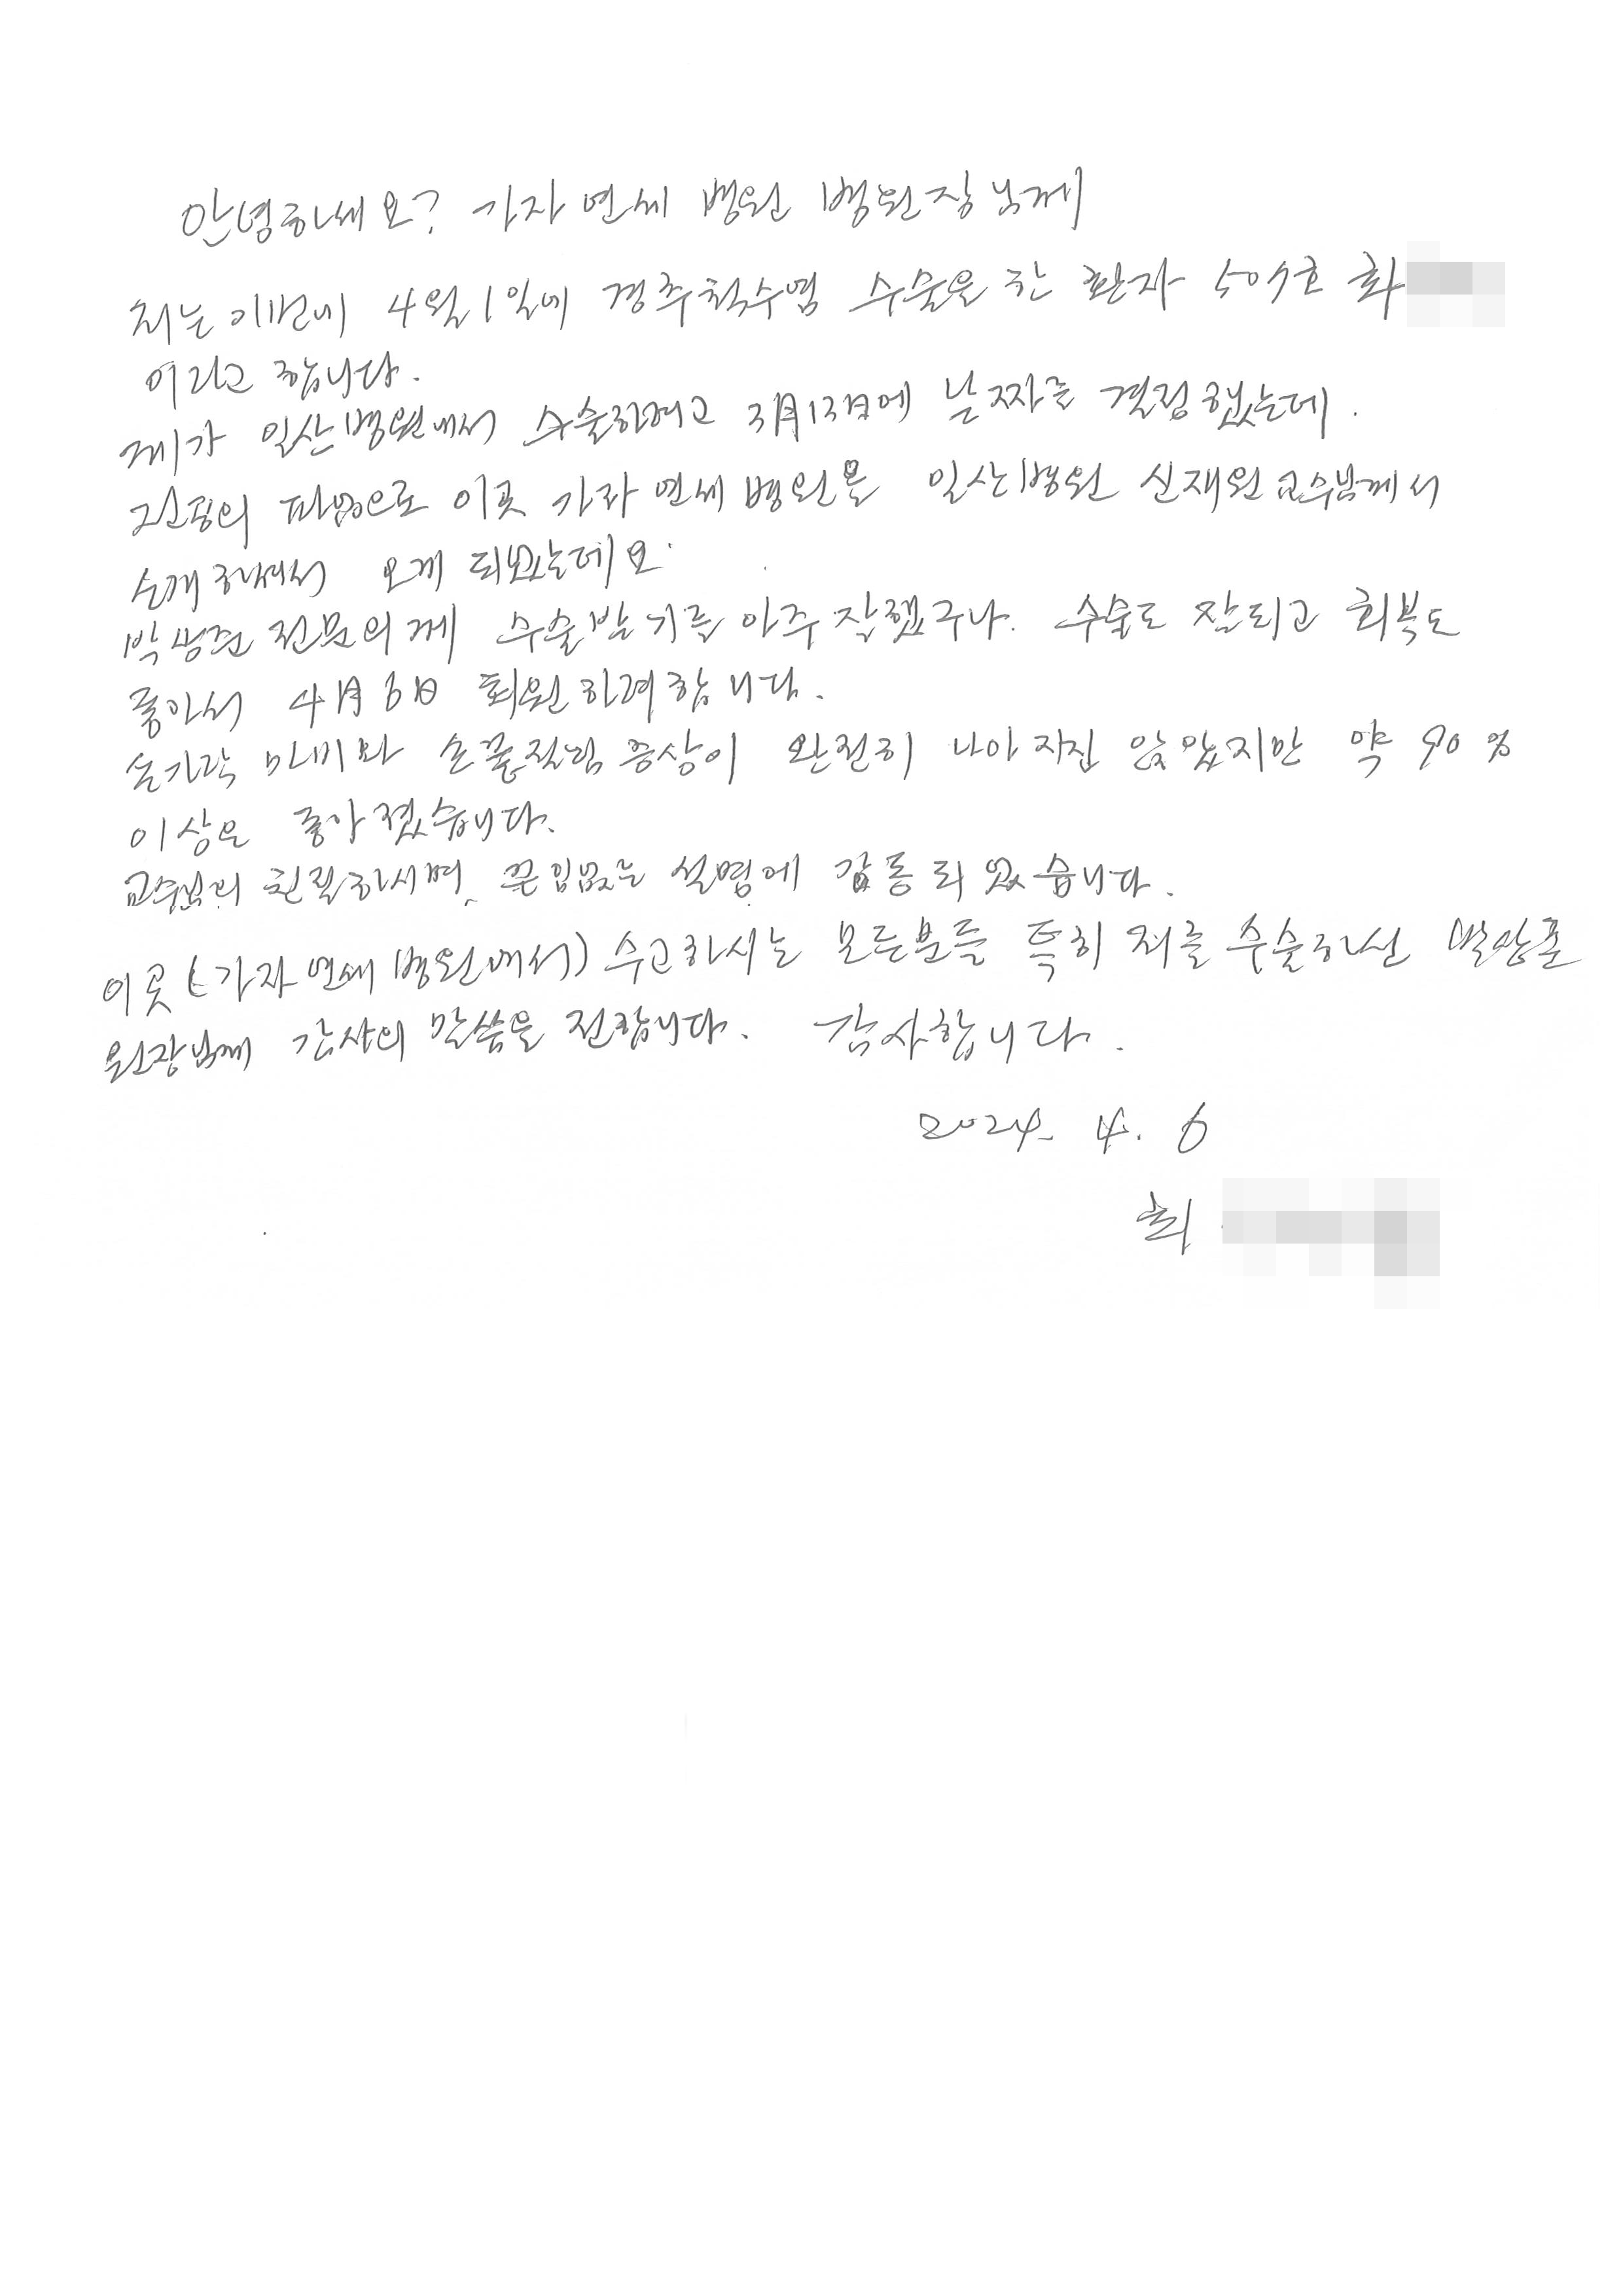 안녕하세요? 가자연세 병원 병원장님께
저는 이번에 4월 1일에 경추척수염 수술을 한 환자 507호 최
이라고 합니다.
제가 일산병원에서 수술하려고 3月13日에 날짜를 결정했는데.
전공의 파업으로 이곳 가자연세병원을 일산병원 신재원 교수님께서
소개하셔서 오게 되었는데요.
박상준 전문의께 수술받기를 아주 잘했구나. 수술도 잘되고 회복도
좋아서 4月 6日 퇴원하려합니다.
손가락 마비와 손끝저림 증상이 완전히 나아지진 않았지만 약 90%
이상은 좋아졌습니다.
교수님의 친절하시며, 끈임없는 설명에 감동되었습니다.
이곳 (가자연세병원에서) 수고하시는 모든분들 특히 저를 수술하신
원장님께 감사의 말씀을 전합니다. 감사합니다.
2024. 4. 6
최